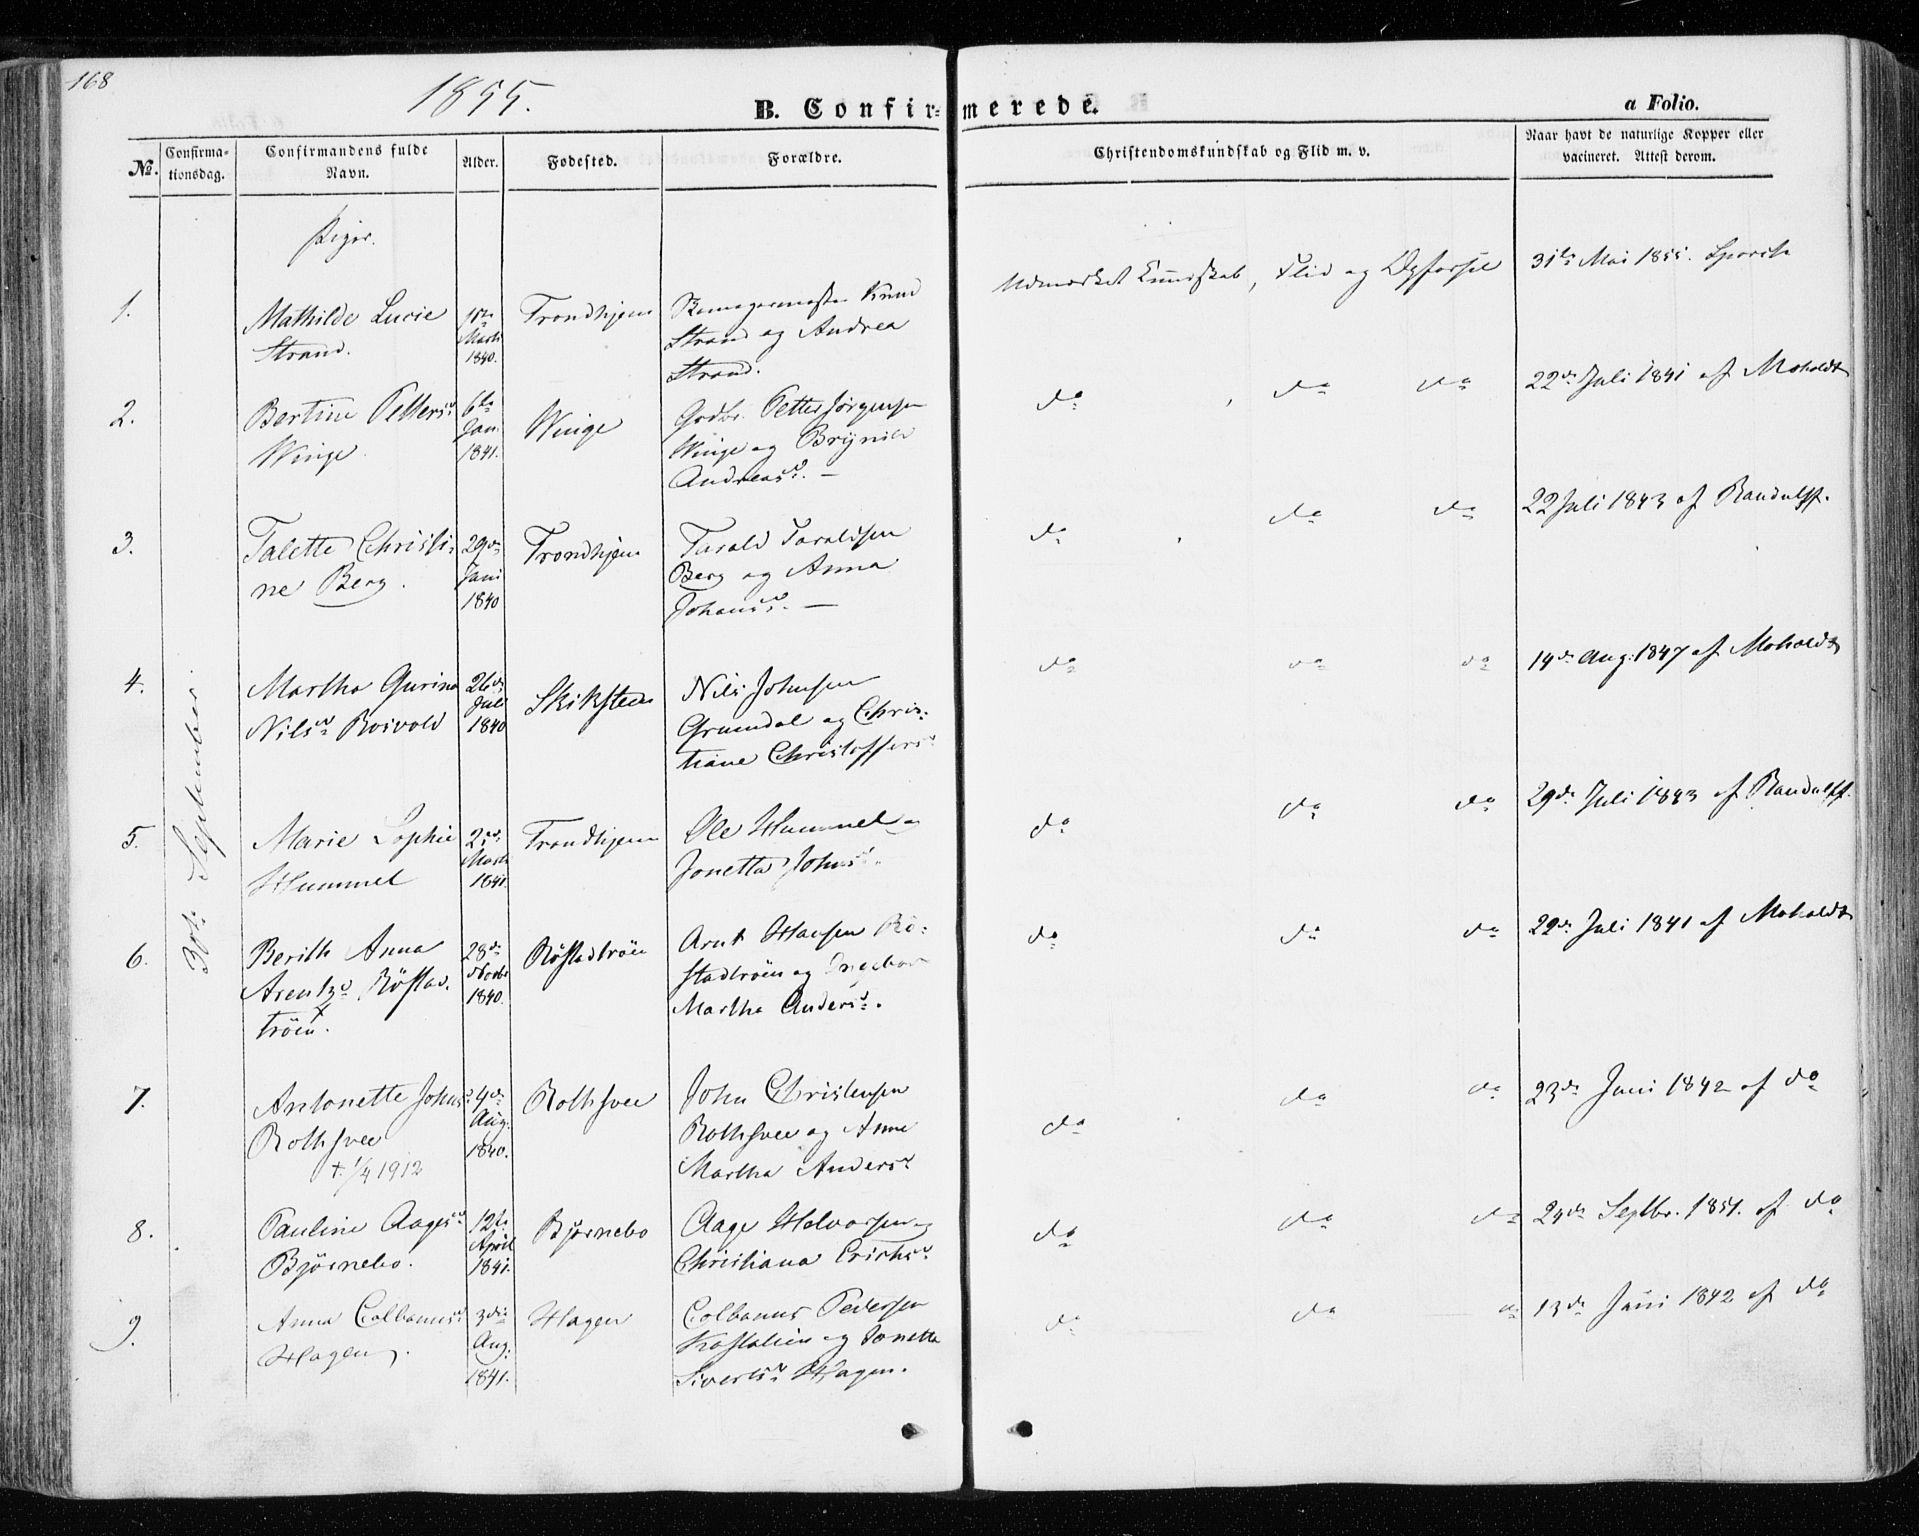 168
1855.
B. Confirmerede.
a Folio.
No. Confirmationsdag. Confirmandens fulde Navn. Alder. Fødested. Forældre. Christendomskundskab og Flid m. v. Naar havt de naturlige Kopper eller vacineret. Attest derom.
Piger.
30te September
1.
Mathilde Lucie
Strand.
Marts
1840.
Trondhjem
Knud
Strand og Andrea
Strand.
Udmærket Kundskab, Flid og Opførsel
31te Mai 1855.
2.
Bertine Petters
Winge
6te
Jan.
1841.
Winge
Petter Jørgensen
Winge og Brynild
Andreasd. —
do do do
22de Juli 1841 af Moholdt
3.
Talette Christi-
ne Berg.
29de
Juni
1840
Trondhjem
Tarald Taraldsen
Berg og Anna
Johansd. —
do do do
22 Juli 1843 af Randulff.
4.
Martha Gurina
Nilsd Roivold
26de
Juli
1840
Skiksteen
Nils Johnsen
Grundal og Chris-
tiane Christoffersd
do do do
14de Aug. 1847 af Moholdt
5.
Marie Sophie
Hummel
2den
Marts
1841.
Trondhjem
Ole Hummel og
Jonetta Johnsd.
do do do
29de Juli 1843 af Randulff.
6.
Berith Anna
Arentzd Röstad-
tröen.
28de
Novbr
1840.
Röstadtröen
Arnt Hansen Rö-
stadtröen og Ingebor
Martha Andersd.
do do do
22de Juli 1841 af Moholdt
7.
Antonette Johnsd
Rothsvee
+ 1/4 1912
Aug.
1840.
Rothsvee
John Christensen
Rothsvee og Anne
Martha Andersd
do do do
23de Juni 1842 af do
8.
Pauline Aagesd
Bjørnebo.
12te
April
1841.
Bjørnebo
Aage Halvorsen og
Christiana Erichsd
do do do
24de Septbr. 1851. af do
9.
Anna Colbanusd
Hagen.
3die
Aug.
1841.
Hagen
Colbanus Pedersen
og Jonetta
Sivertsd Hagen.
do do do
13de Juni 1842 af do